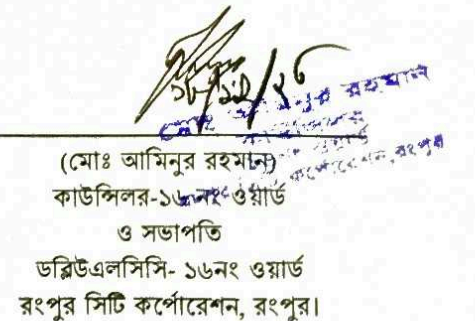 মোঃ আমিনুর রহমান
(মোঃ আমিনুর রহমান)
কাউন্সিলর-১৬ নং ওয়ার্ড
ও সভাপতি
ডব্লিউএলসিসি- ১৬নং ওয়ার্ড
রংপুর সিটি কর্পোরেশন, রংপুর।